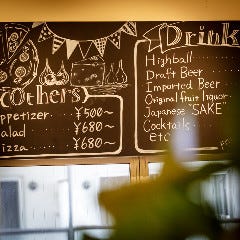 Others
ppetizer ¥500~
alad ¥680~
izza ¥680~
Drink
Highball
Draft Beer
Imported Beer
Original fruit liquor
Japanese "SAKE"
Cocktails
etc